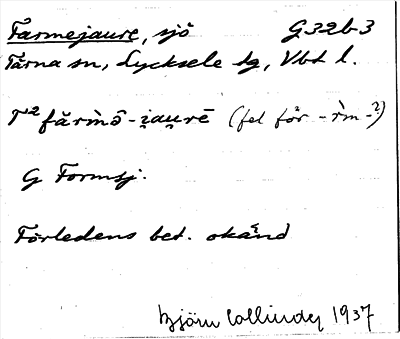 Farmejaure, sjö G32b3
Tärna sn, Lycksele lg, Vbt l.
T² fårmô-i̯au̯rē (fel för -r̀m-?)
G Formsj.
Förledens bet. okänd
Björn Collinder 1937